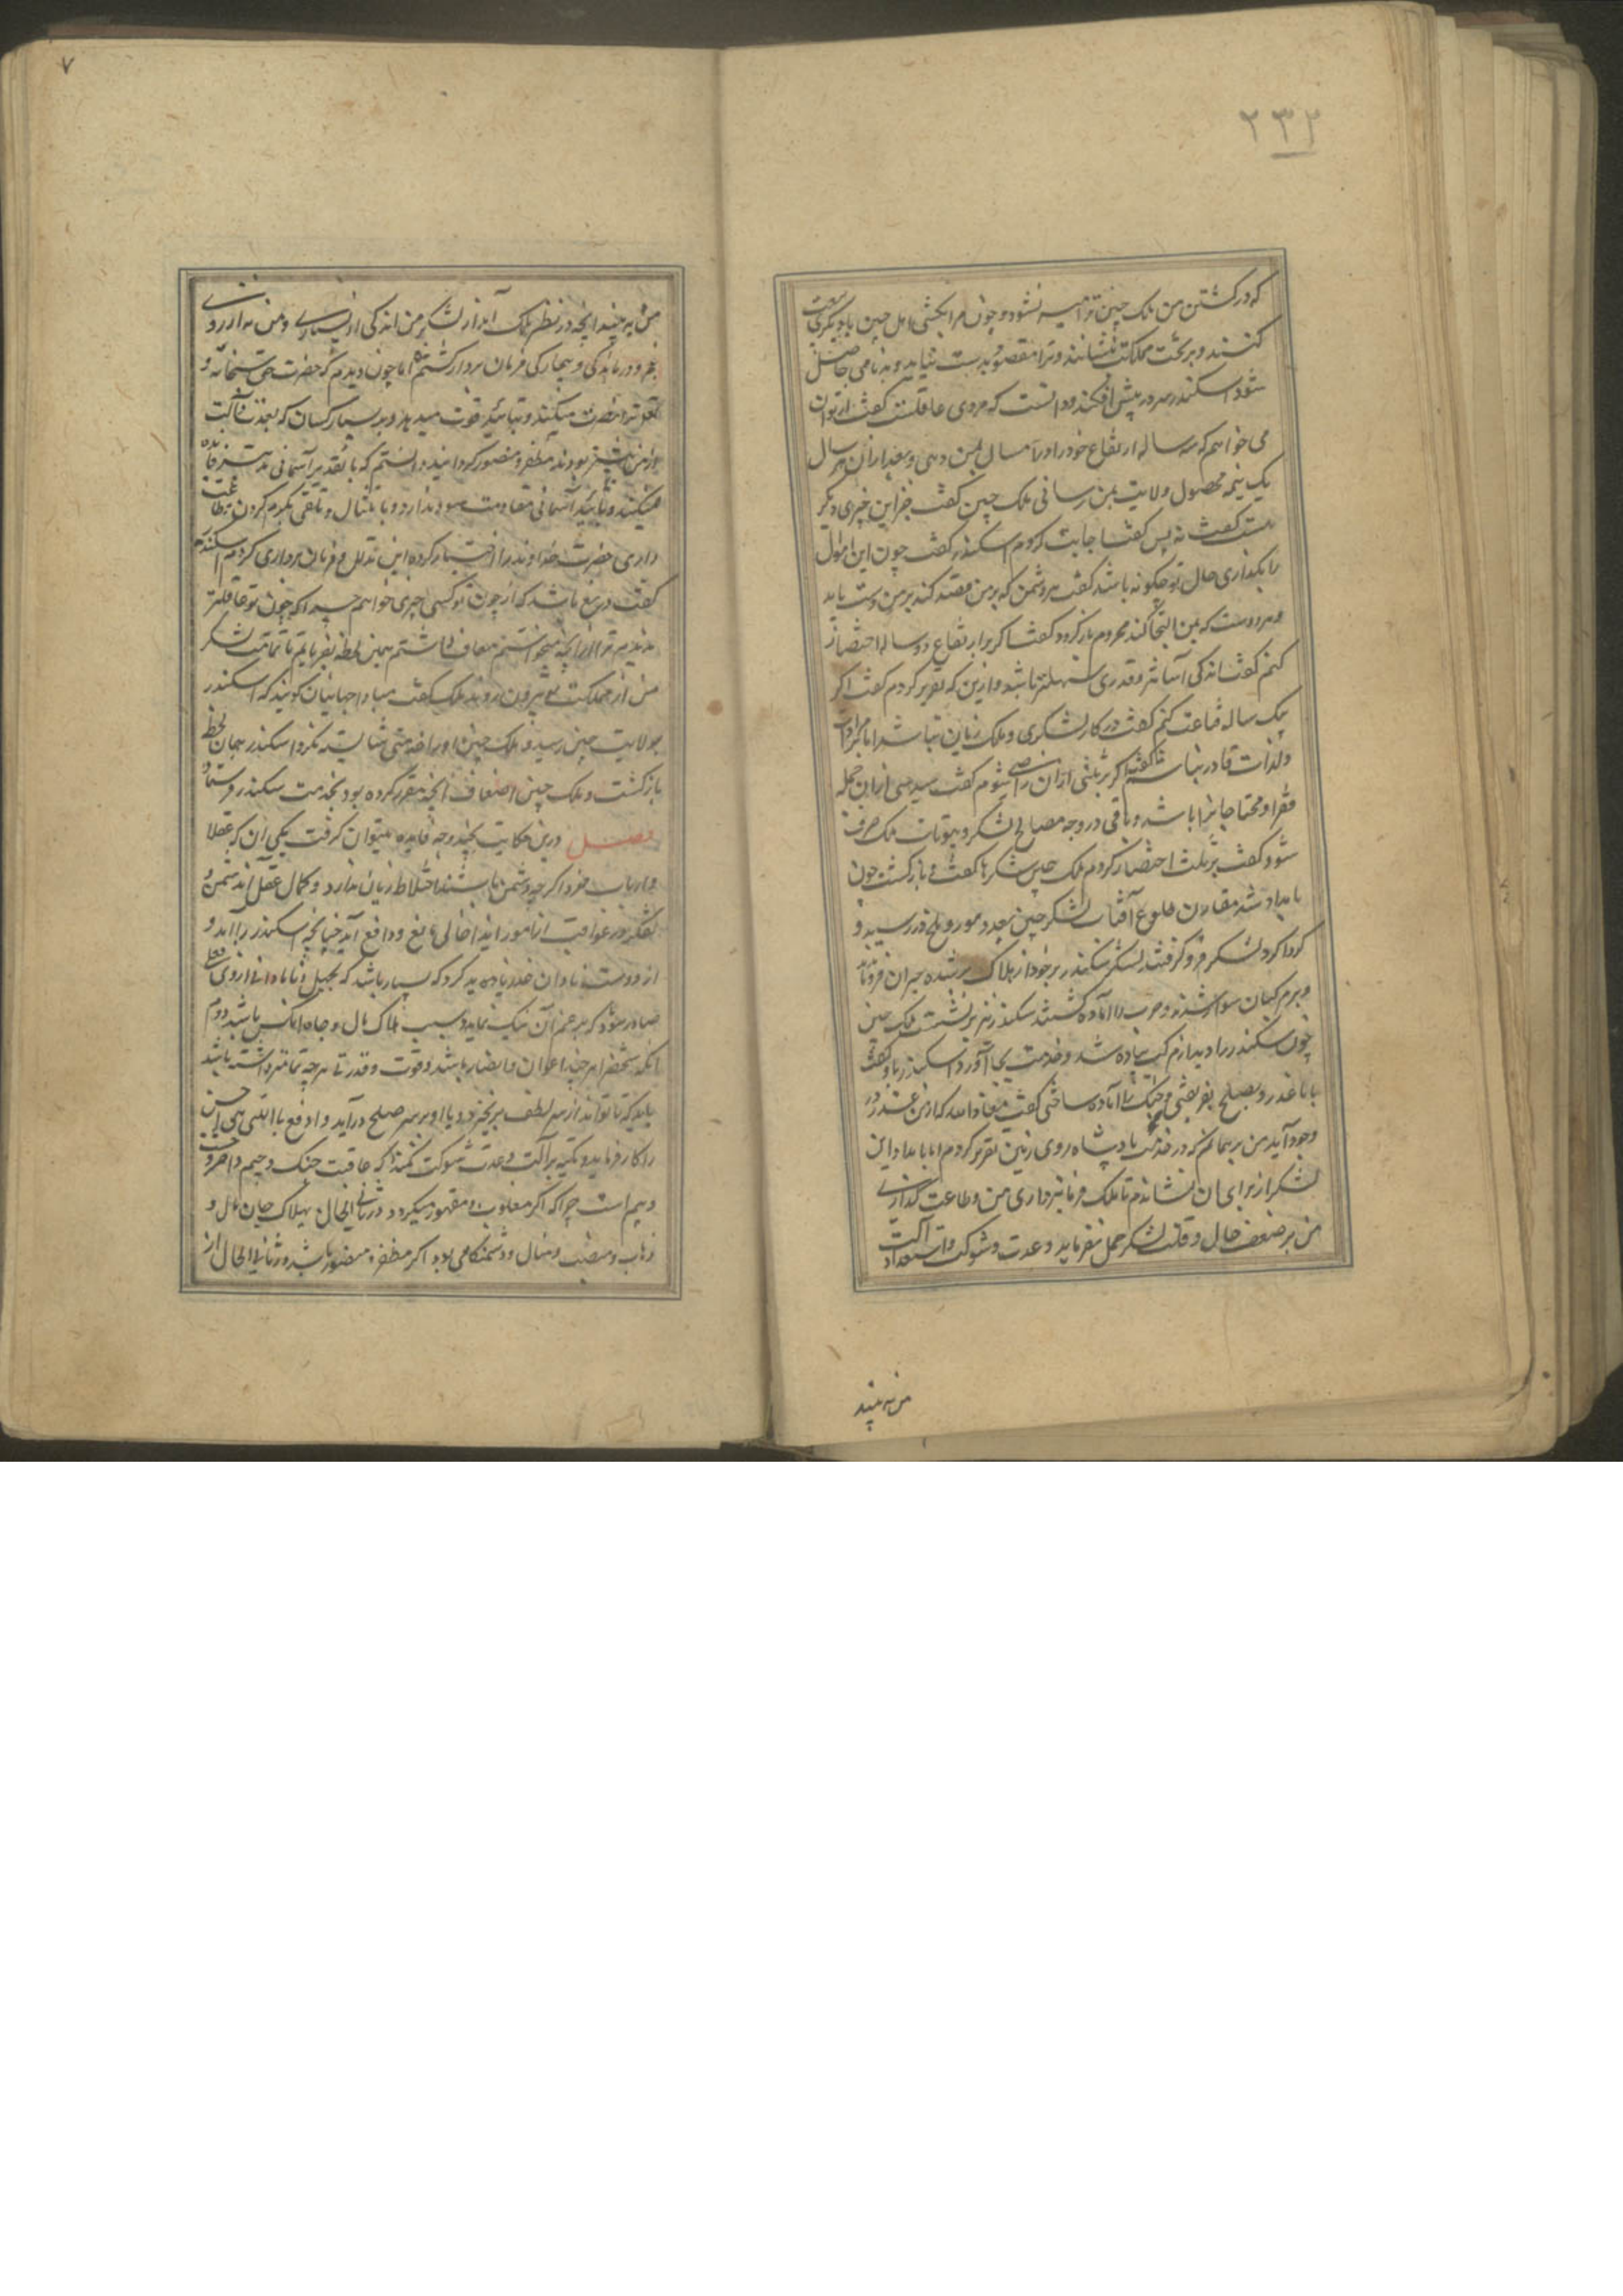 ۲۳۲
که در کشتن من ملک چین ترا میسر نشود و چون مرا بکشی اهل چین با دیگری بیعت
کنند و بر تخت مملکت بنشانند و ترا مقصود بدست نیاید و بدنامی حاصل
شود اسکندر سر در پیش افکند و دانست که مردی عاقلست گفت از تو آن
می خواهم که سه ساله ارتفاع خود را درین سال بمن دهی و بعد از آن هر سال
یک نیمه محصول ولایت بمن رسانی ملک چین گفت جز این چیزی دیگر
هست گفت نه پس گفت اجابت کردم اسکندر گفت چون این اموال
را بگذاری حال تو چگونه باشد گفت هر دشمن که بر من قصد کند بر من دست یابد
و هر دوست که بمن التجا کند محروم باز گردد گفت اگر بر ارتفاع دو ساله اختصار
کنم گفت اندکی آسانتر و قدری سهلتر باشد از این که تقریر کردم گفت اگر
بیک ساله قناعت کنم گفت در کار لشکری و ملک زیان نباشد اما بر مرادات
و لذات قادر نباشم گفت اگر بر ثلثی از آن راضی شوم گفت سدسی از آن جمله
فقرا و محتاجانرا باشد و باقی در وجه مصالح لشکر و بیوتات ملک صرف
شود گفت بر ثلث اختصار کردم ملک چین شکرها گفت و باز گشت چون
بامداد شد مقارن طلوع آفتاب لشکر چین بعدد مور و ملخ در رسید و
گرداگرد لشکر فرو گرفت لشکر سکندر بر خود از هلاک ترسیده حیران فرو ماندند
و بر مرکبان سوار شدند و حرب را آماده گشتند سکندر نیز بر نشست ملک چین
چون سکندر را دید از مرکب پیاده شد و خدمت بجا آورد اسکندر با او گفت
با ما غدر و بصلح بفریفتی و جنگ را آماده ساختی گفت معاذ الله که از من غدر در
وجود آید من بر همانم که در خدمت پادشاه روی زمین تقریر کردم اما بامداد این
لشکر از برای آن نشاندم تا ملک فرمانبرداری من و طاعت گذاری
من بر ضعف حال و قلت لشکر حمل نفرماید و عدت و شوکت و استعداد آلت
من به بیند
۷
من به بیند آنچه در نظر ملک آید از لشکر من اندکی از بسیاری و من نه از روی
عجز و درماندگی و بیچارگی فرمان بردار گشتم اما چون دیدم که حضرت حق سبحانه و
تعالی ترا نصرت میکند و بتایید قوت میدهد و بر بسیار کسان که بعدت و آلت
از من بیشتر بودند مظفر و منصور گردانید دانستم که با تقدیر آسمانی تدبیر فایده
نمیکند و با تایید آسمانی مقاومت سود ندارد و با اقبال و تلقی بکردم گردن بطاعت
داری حضرت خداوند را اختیار کرده این تذلل و فرمان برداری کردم اسکندر
گفت دریغ باشد که از چون تو کسی چیزی خواهم چرا که چون تو عاقلتر
ندیدم ترا از آنچه میخواستم معاف داشتم همین لحظه بفرمایم تا تمامت لشکر
من از مملکت تو بیرون روند ملک گفت مبادا جهانیان گویند که اسکندر
بولایت چین رسید و ملک چین او را خدمتی شایسته نکرد اسکندر همان لحظه
بازگشت و ملک چین اضعاف آنچه مقرر کرده بود بخدمت سکندر فرستاد
فصل درین حکایت چند وجه فایده میتوان گرفت یکی آن که عقلا
و ارباب خرد اگر چه دشمن باشند اختلاط زیان ندارد و کمال عقل اندشمن و
تفکر در عواقب امور ایذا خالی مانع و دافع آید چنانچه اسکندر را آمد و
از دوست نادان حذر باید کرد که بسیار باشد که بجهل و نادانی از وی فعلی
صادر شود که بزعم آن نیک نماید و سبب هلاک مال و جاه آنکس باشد دوم
آنکه شخص هر چند اعوان و انصار باشد و قوت و قدرت هر چه تمامتر داشته باشد
باید که تا تواند از سر لطف بر نخیزد و با او بر سر صلح در آید و ادفع بالتی هی احسن
را کار فرماید و تکیه بر آلت و عدت شوکت نکند که عاقبت جنگ وخیم
وخیم است چرا که اگر مغلوب و مقهور میگردد در ثانی الحال بهلاک جان و مال و
ذهاب و منصب و منال و دشمنکامی بود اگر مظفر و منصور باشد در ثانی الحال از